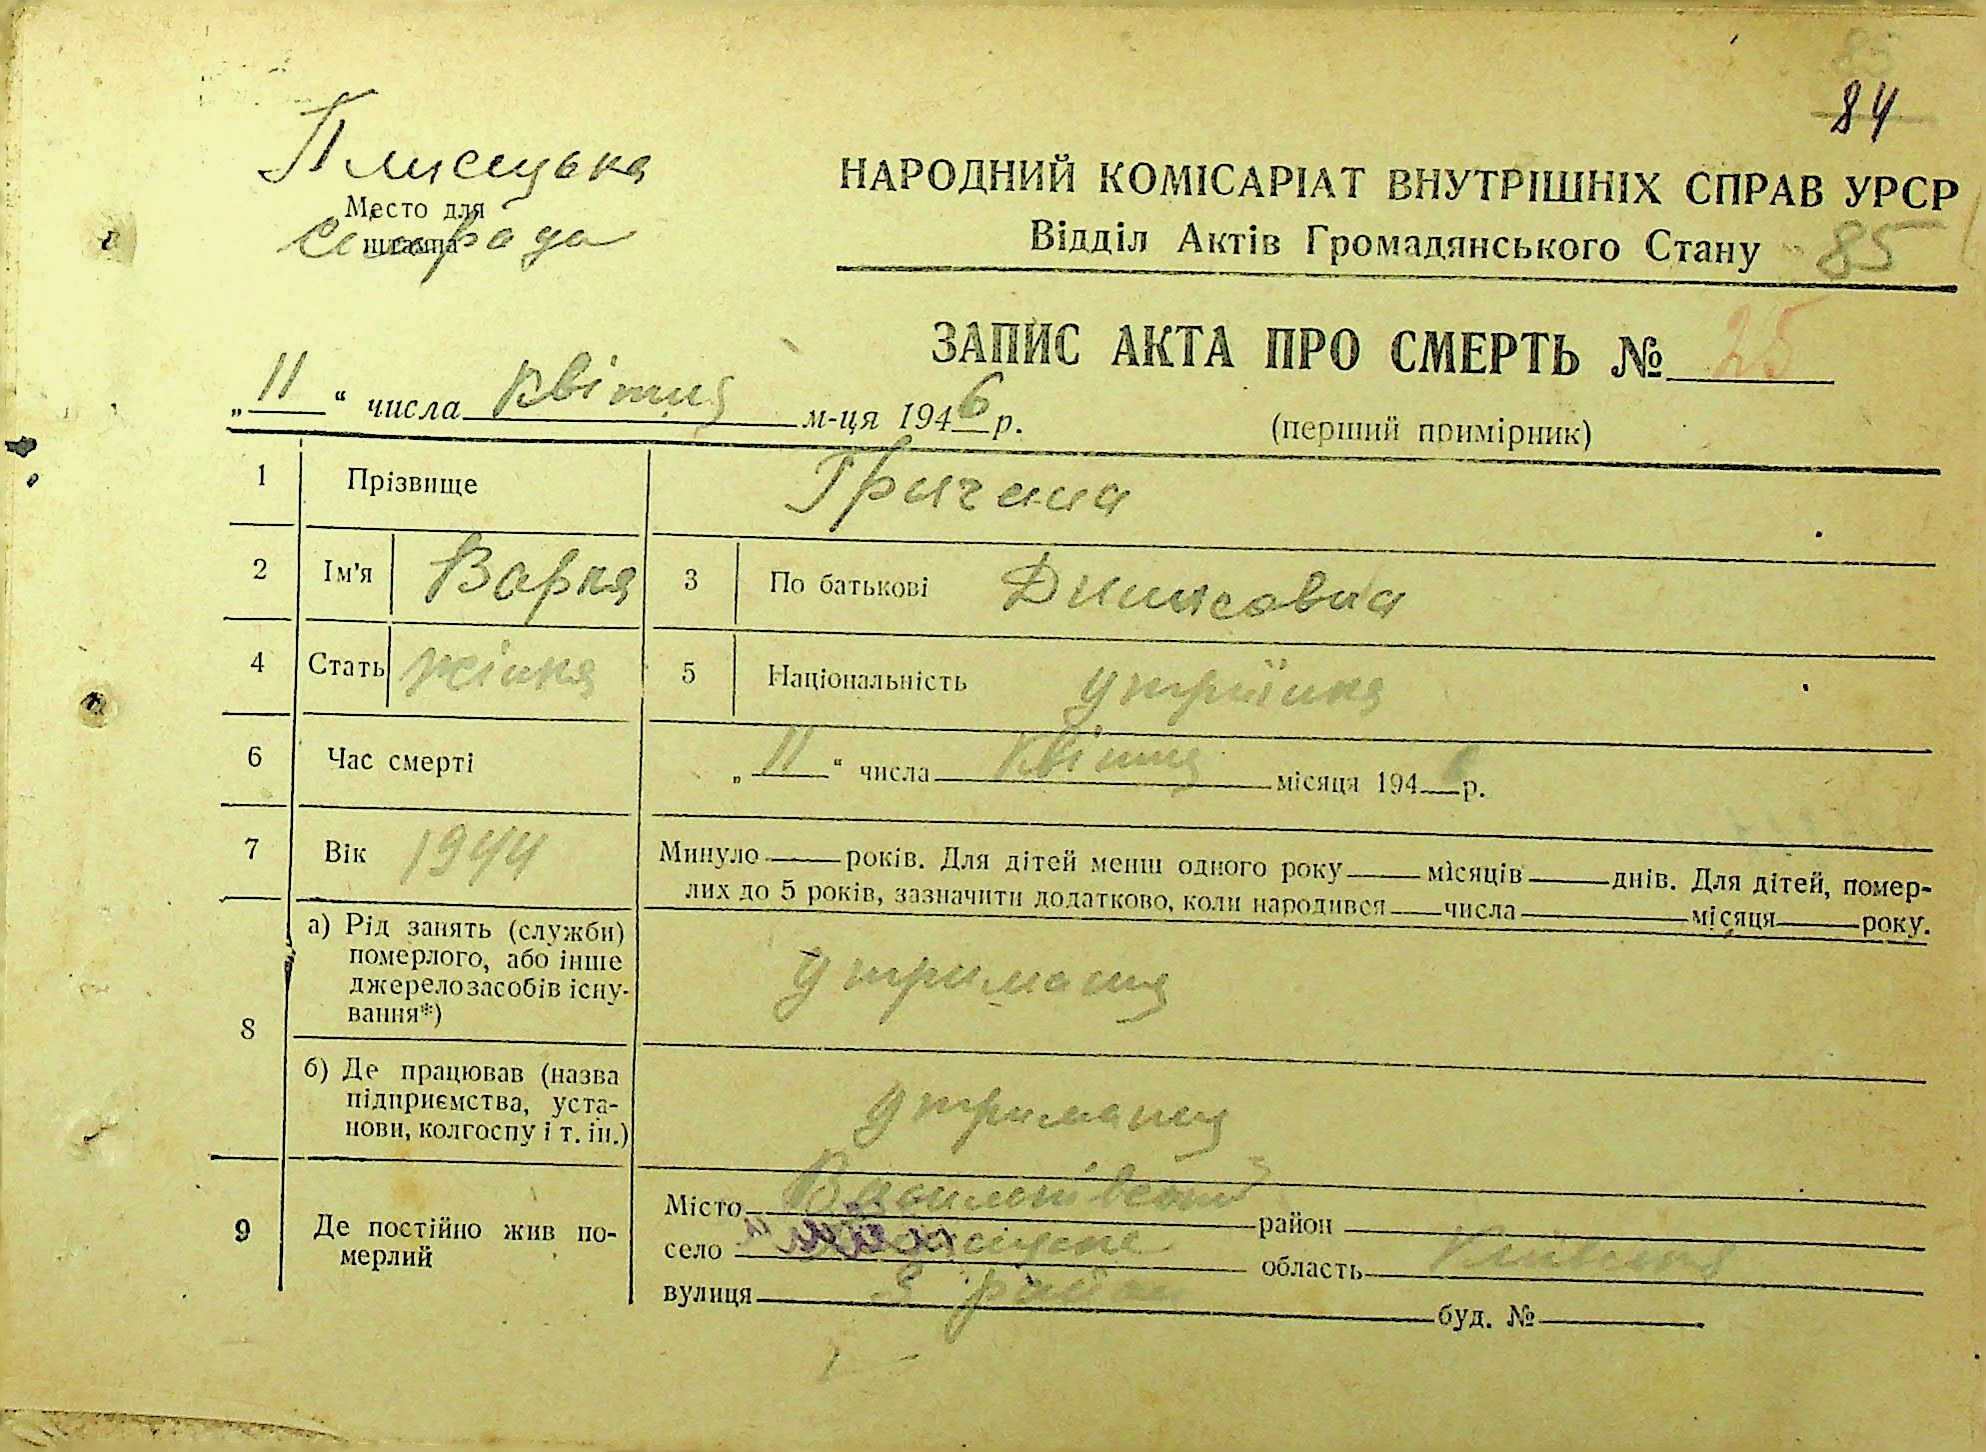 84
Плисецька
Место для
штампа
сільрада
НАРОДНИЙ КОМІСАРІАТ ВНУТРІШНІХ СПРАВ УРСР
Відділ Актів Громадянського Стану
85
ЗАПИС АКТА ПРО СМЕРТЬ № 25
„11“ числа квітня м-ця 1946 р.
(перший примірник)
1 Прізвище Гричена
2 Ім'я Варка 3 По батькові Денисовна
4 Стать жінка 5 Національність украінка
6 Час смерті „11“ числа квітня місяця 1946 р.
7 Вік 1944 Минуло років. Для дітей менш одного року місяців днів. Для дітей, помер-
лих до 5 років, зазначити додатково, коли народився числа місяця року.
8 а) Рід занять (служби)
померлого, або інше
джерело засобів існу-
вання*)
утриманя
б) Де працював (назва
підприємства, уста-
нови, колгоспу і т. ін.)
утриманя
9 Де постійно жив по-
мерлий
Місто Васильківский район
село область Київська
вулиця буд. №